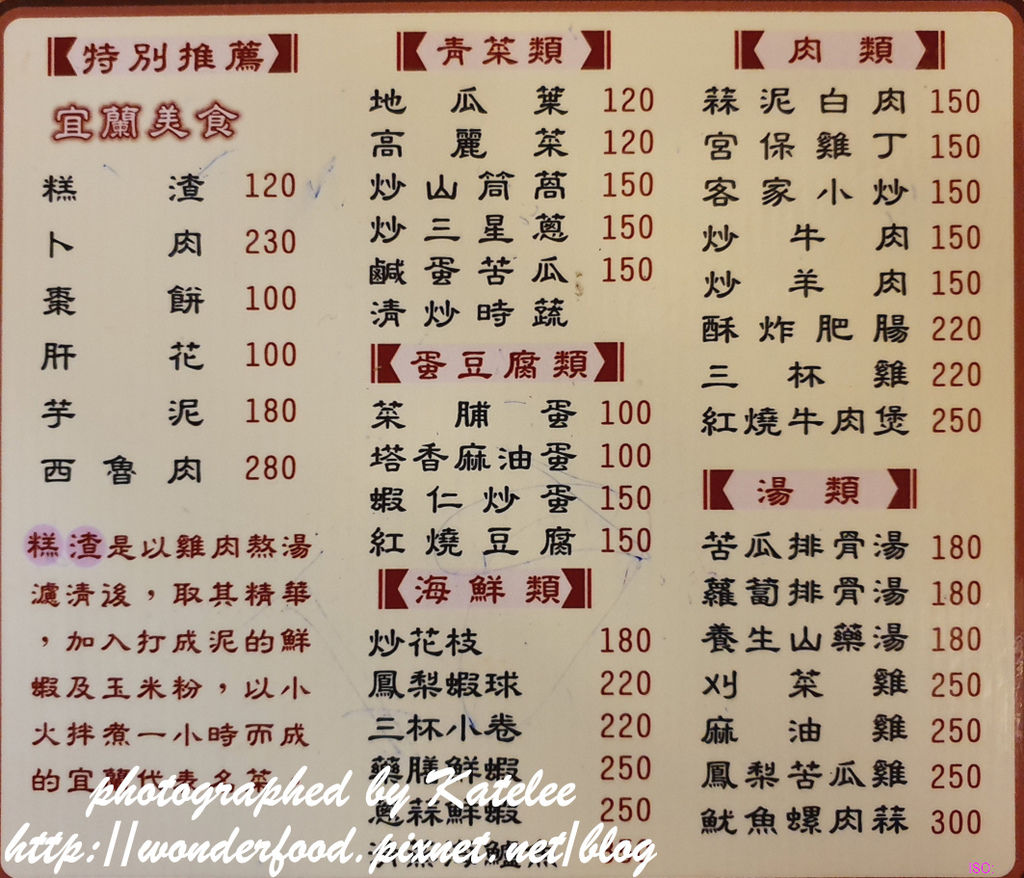 特別推薦
宜蘭美食
糕渣 120
卜肉 230
棗餅 100
肝花 100
芋泥 180
西魯肉 280
糕渣是以雞肉熬湯
濾清後，取其精華
，加入打成泥的鮮
蝦及玉米粉，以小
火拌煮一小時而成
的宜蘭代表名菜
青菜類
地瓜葉 120
高麗菜 120
炒山茼蒿 150
炒三星蔥 150
鹹蛋苦瓜 150
清炒時蔬
蛋豆腐類
菜脯蛋 100
塔香麻油蛋 100
蝦仁炒蛋 150
紅燒豆腐 150
海鮮類
炒花枝 180
鳳梨蝦球 220
三杯小卷 220
藥膳鮮蝦 250
蔥蒜鮮蝦 250
肉類
蒜泥白肉 150
宮保雞丁 150
客家小炒 150
炒牛肉 150
炒羊肉 150
酥炸肥腸 220
三杯雞 220
紅燒牛肉煲 250
湯類
苦瓜排骨湯 180
蘿蔔排骨湯 180
養生山藥湯 180
刈菜雞 250
麻油雞 250
鳳梨苦瓜雞 250
魷魚螺肉蒜 300
photographed by Katelee
http://wonderfood.pixnet.net/blog
ISO: